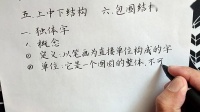 五.上中下结构 六.包围结构
一.独体字
1.概念
① 定义:以笔画为直接单位构成的字
② 单位:它是一个囫囵的整体,不可